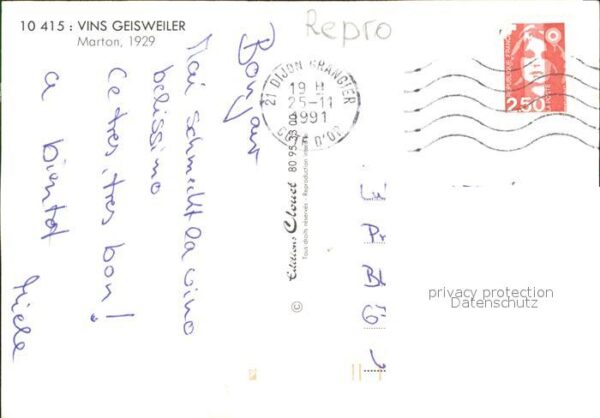 10 415 : VINS GEISWEILER
Marton, 1929
Repro
21 DIJON GRANGIER
19 H
25-11
1991
CÔTE D'OR
2,50
Bonjour
Mai schmeckt la vino
belissimo
Ce tres, tres bon!
a bientot
Éditions Clouet
80 95 33 00
Tous droits réservés - Reproduction interdite
©
privacy protection
Datenschutz